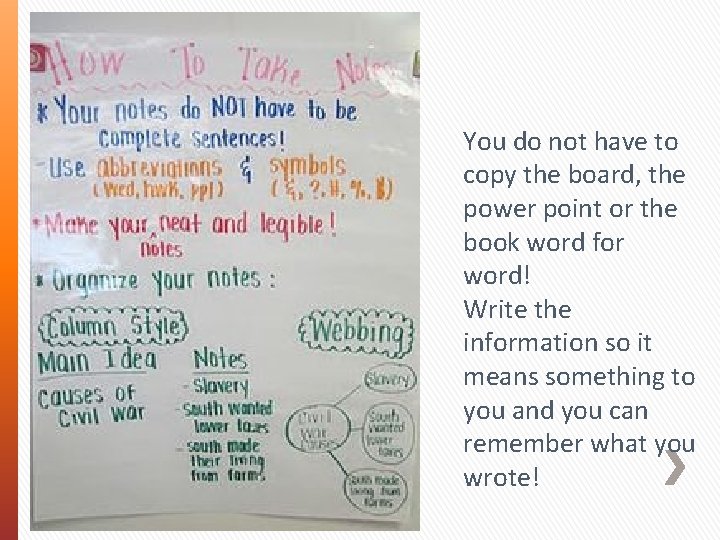 How To Take Notes
* Your notes do NOT have to be
Complete Sentences!
- Use abbreviations & symbols
(Wed, hwk, ppl) (&, ?, #, %, $)
* Make your ^ neat and legible!
Notes
* Organize your notes:
Column Style
Webbing
Main Idea Notes
Causes of
Civil War
- Slavery
- South wanted
lower taxes
- South made
their living
from farms
Civil
War
Causes
Slavery
South
wanted
lower
taxes
South made
living from
farms
You do not have to
copy the board, the
power point or the
book word for
word!
Write the
information so it
means something to
you and you can
remember what you
wrote!